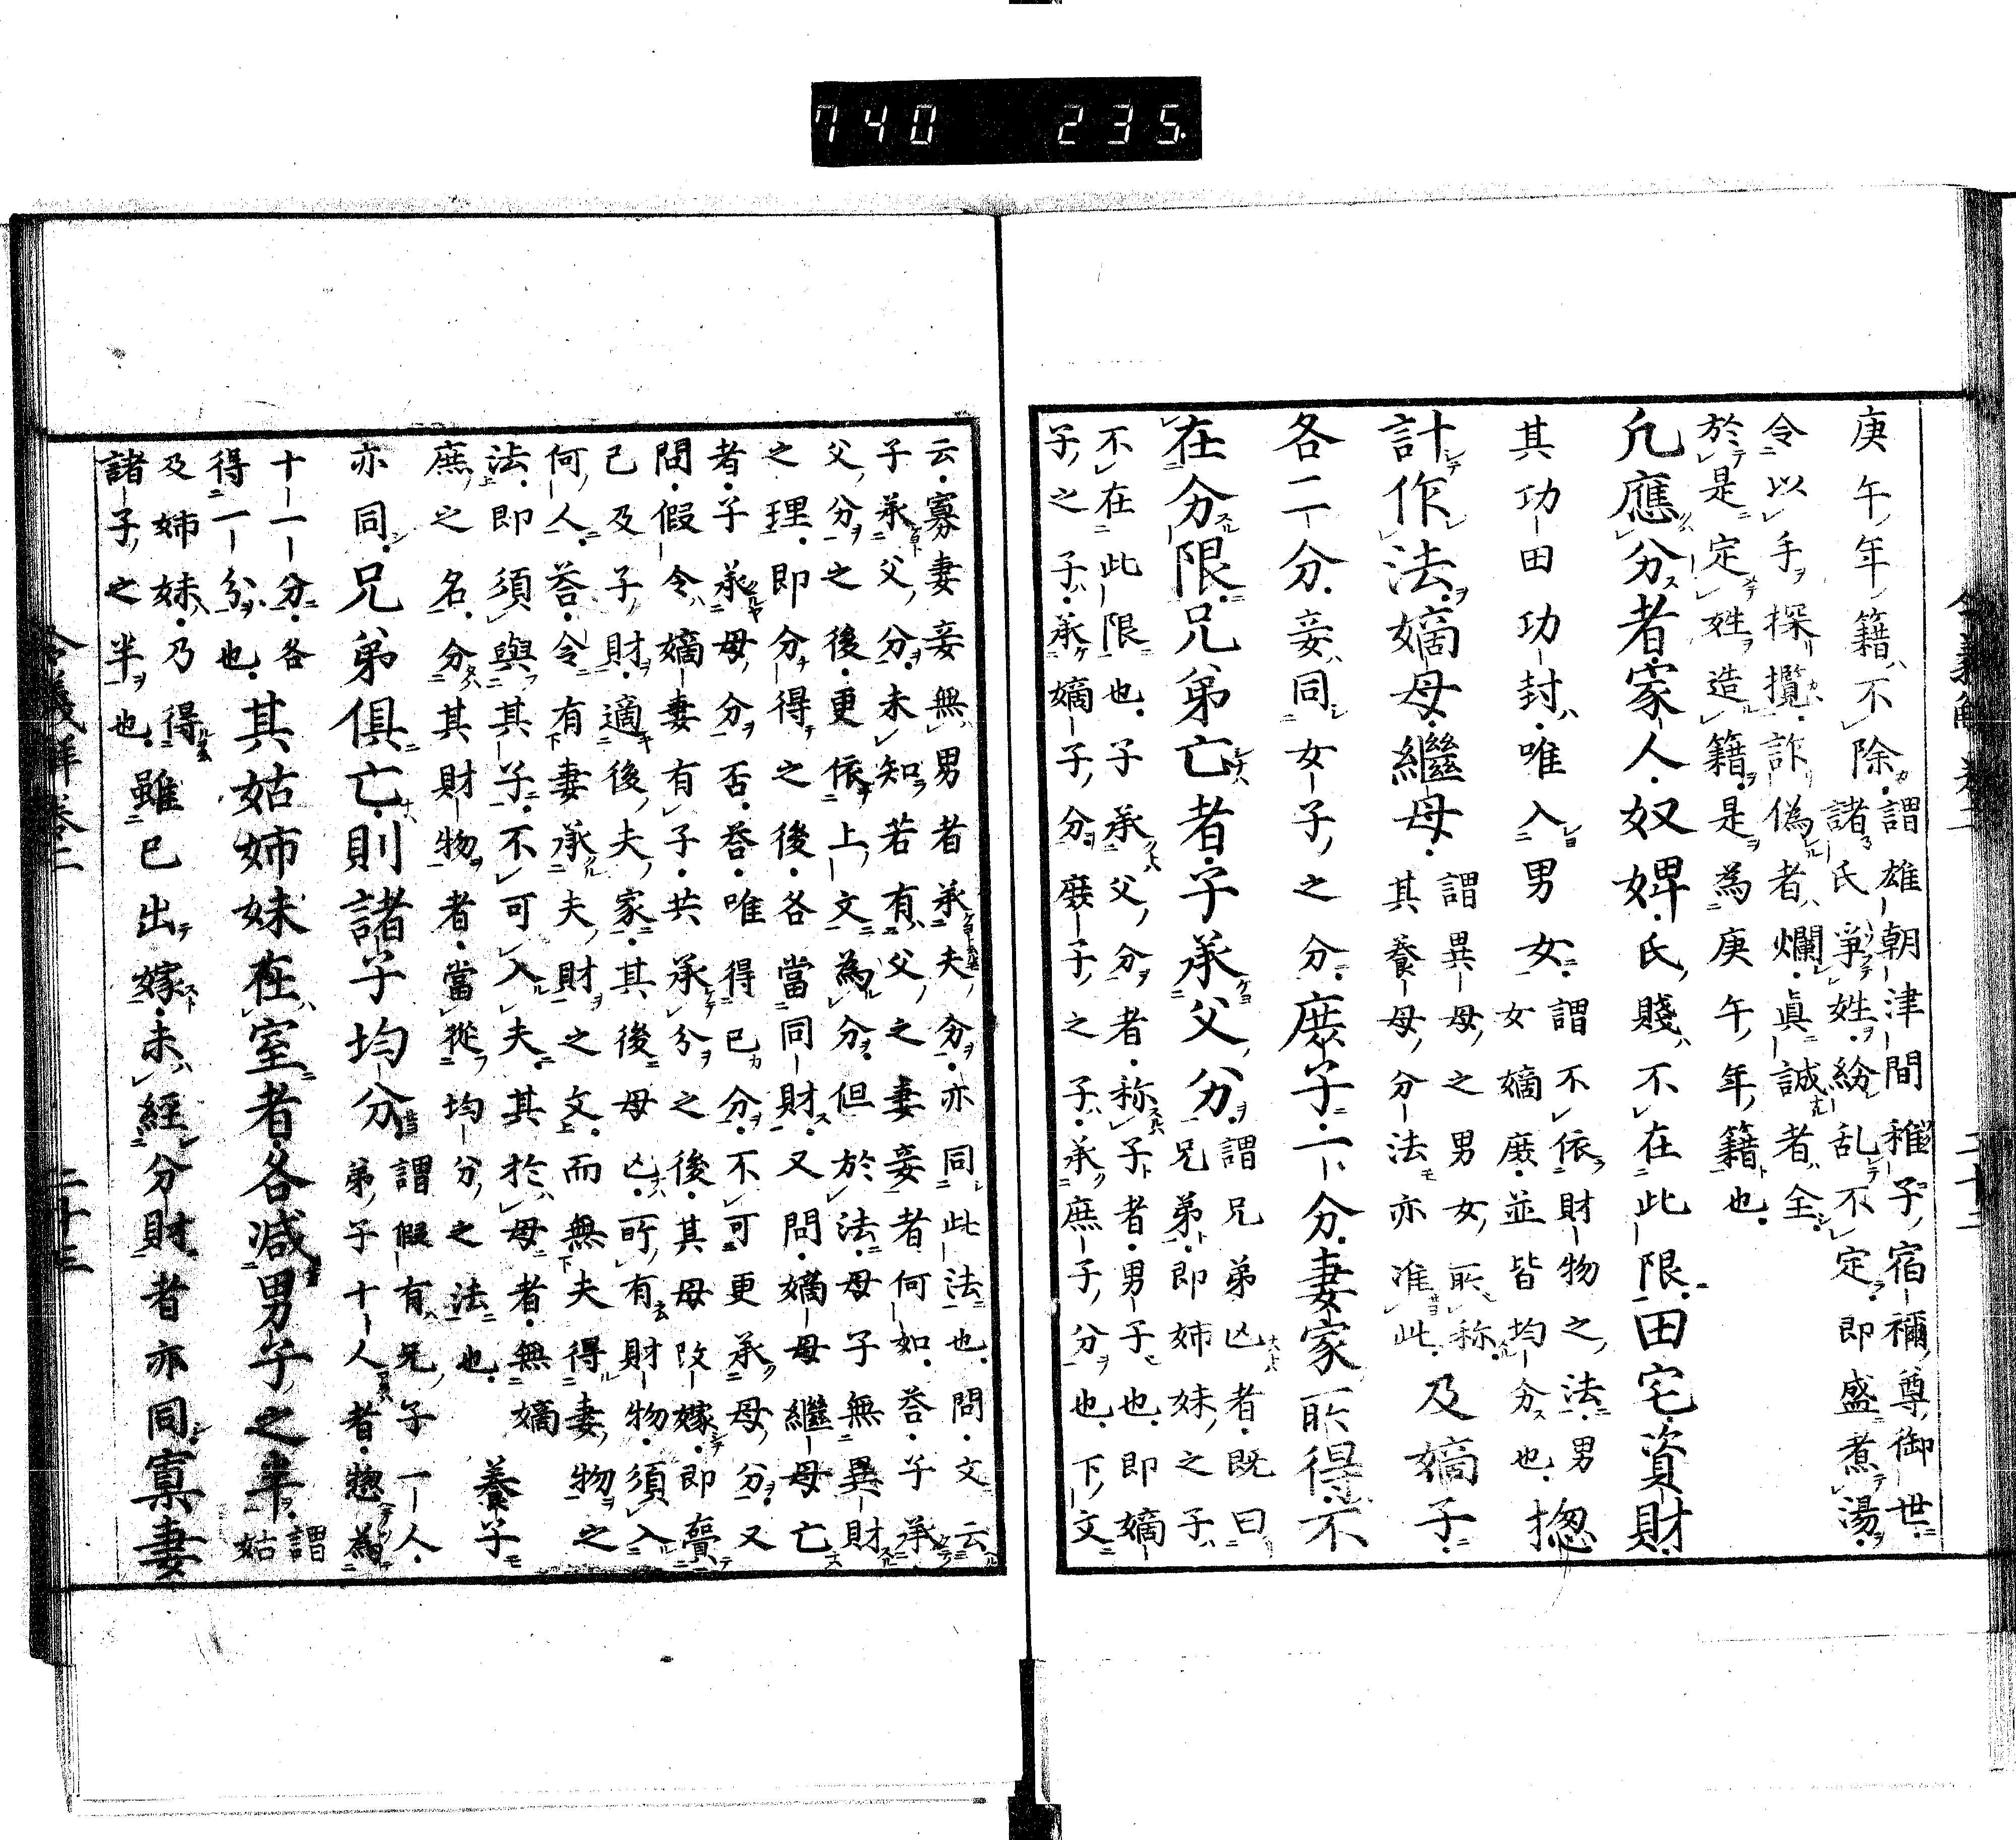 740 235
庚午年籍不除謂雄朝津間稚子宿禰尊御世
諸氏爭姓紛乱不定即盛煮湯
令以手探攪詐偽者爛眞誠者全
於是定姓造籍是為庚午年籍也
凢應分者家人奴婢氏賤不在此限田宅資財
其功田功封唯入男女謂不依財物之法男
女嫡庶並皆均分也惣
計作法嫡母繼母謂異母之男女所称
其養母分法亦准此及嫡子
各二分妾同女子之分庶子一分妻家所得不
在分限兄弟亡者子承父分謂兄弟亡者既曰
兄弟即姉妹之子
不在此限也子承父分者称子者男子也即嫡
子之子承嫡子分庶子之子承庶子分也下文
云寡妻妾無男者承夫分亦同此法也問文云
子承父分未知若有父之妻妾者何如荅子承
父分之後更依上文為分但於法母子無異財
之理即分得之後各當同財又問嫡母繼母亡
者子承母分否荅唯得已分不可更承母分又
問假令嫡妻有子共承分之後其母改嫁即賷
己及子財適後夫家其後母亡所有財物須入
何人荅令有妻承夫財之文而無夫得妻物之
法即須與其子不可入夫其於母者無嫡
庶之名分其財物者當從均分之法也養子
亦同兄弟俱亡則諸子均分謂假有兄子一人
弟子十人者惣為
十一分各
得一分也其姑姉妹在室者各减男子之半謂
姑
及姉妹乃得
諸子之半也雖已出嫁未經分財者亦同寡妻
二十三